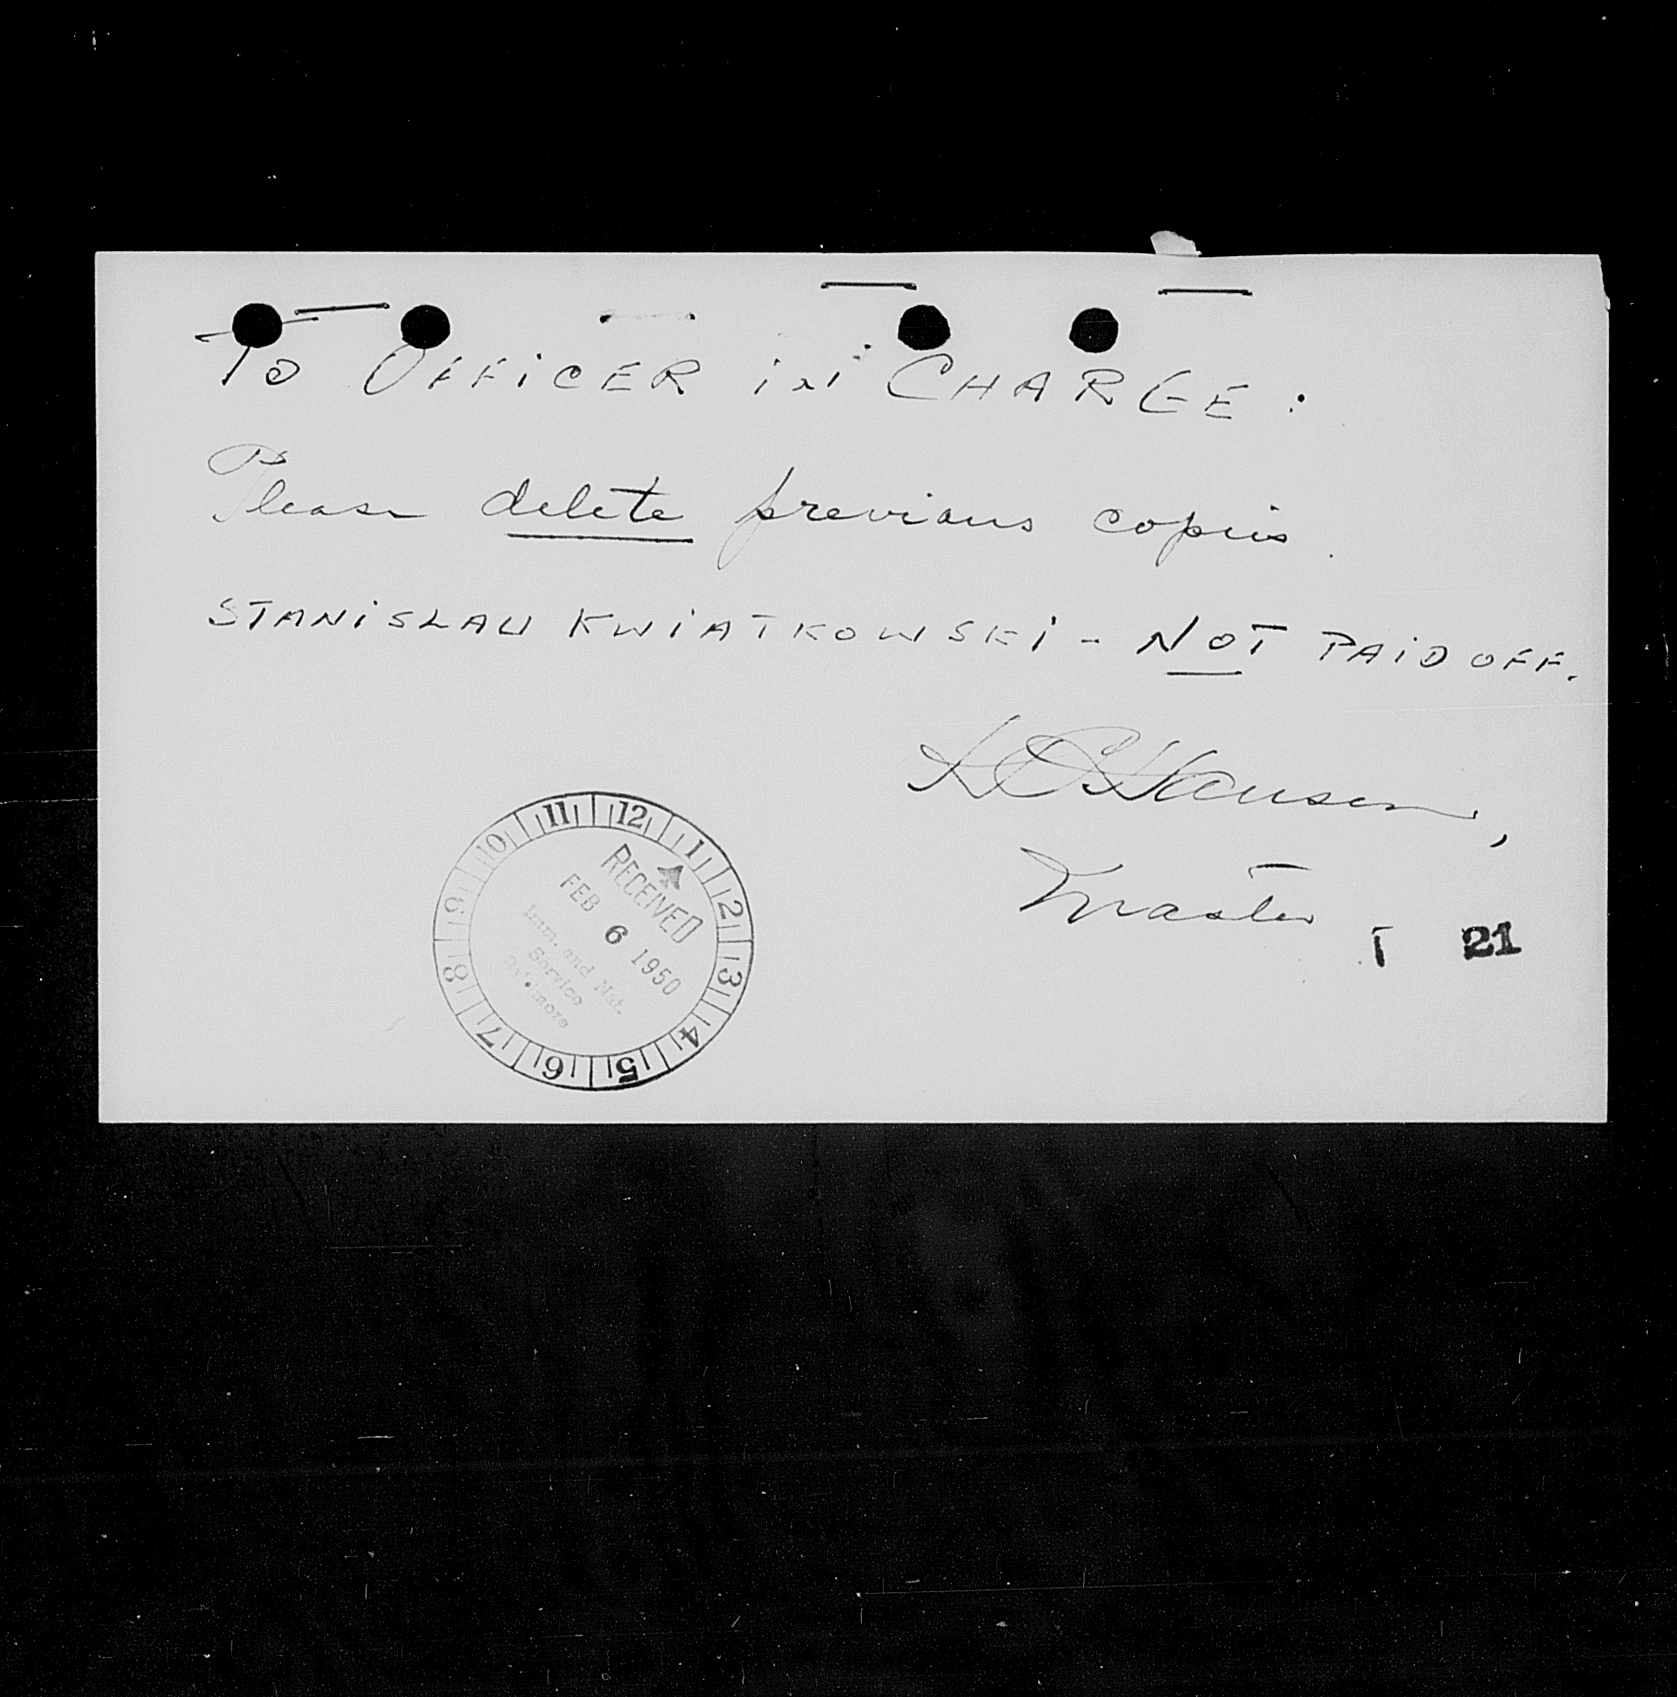 To OFFiCER iN CHARGE :
Please delete previous copies.
STANiSLAU KWiATKOWSKi - NOT PAiD OFF.
Hansen,
Master
I 21
11 12 1 2 3 4 5 6 7 8 9 10
RECEIVED
FEB 6 1950
Imm. and Nat.
Service
Baltimore